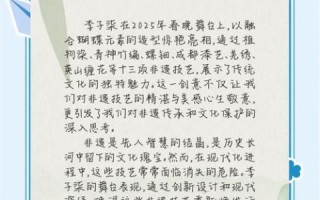 李子柒在2025年春晚舞台上,以融
合蝴蝶元素的造型惊艳亮相,通过植
物染、青神竹编、蝶鞘、成都漆艺、羌绣、
英山缠花等十三项非遗技艺,展示了传统
文化的独特魅力。这一创意不仅让我
们对非遗技艺的精湛与美感心生敬意,
更引发了我们对非遗传承和文化保护的
深入思考。
非遗是先人智慧的结晶,是历史长
河中留下的文化瑰宝。然而,在现代化进
程中,这些技艺常常面临消失的危险。李
子柒的舞台表现,通过创新设计和现代